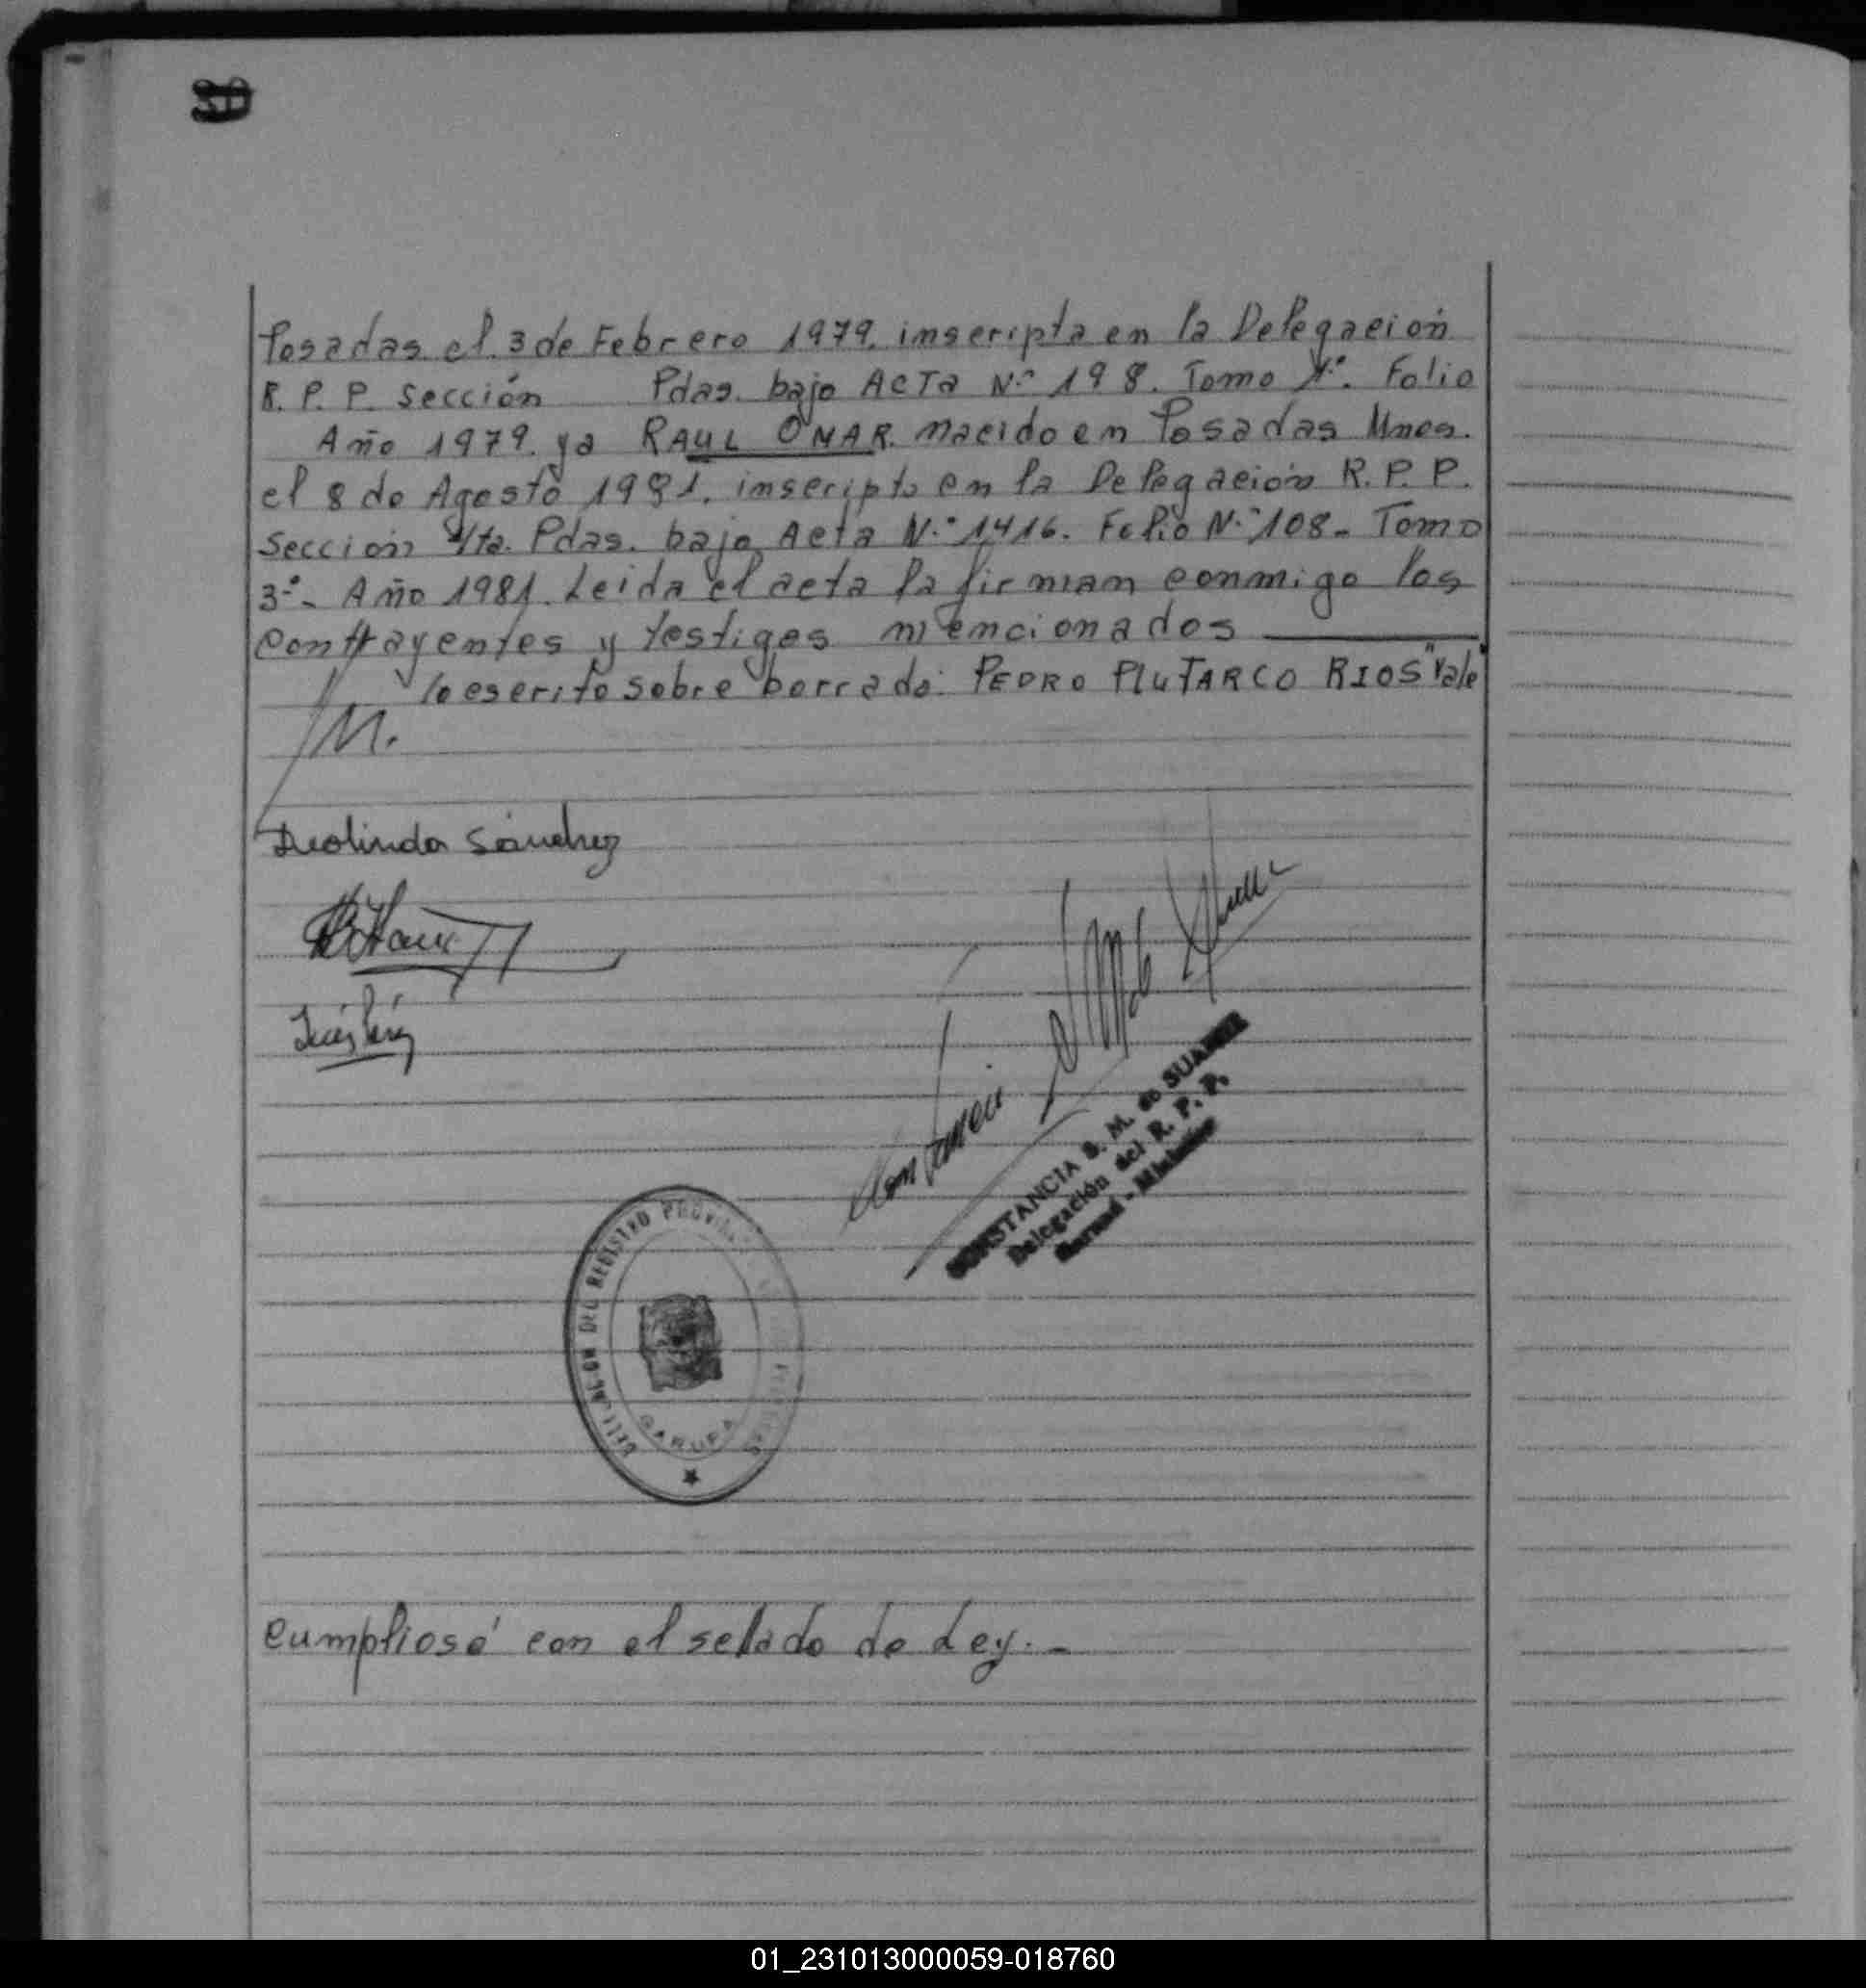 Posadas el 3 de Febrero 1979. inscripta en la Delegación
R. P. P. Sección Pdas. bajo ACTA N.° 198. Tomo Folio
Año 1979. ya RAUL OMAR. nacido en Posadas Mnes.
el 8 de Agosto 1981. inscripto en la Delegación R. P. P.
Sección 4ta. Pdas. bajo Acta N.° 1416. Folio N.° 108- Tomo
3°- Año 1981. Leida el acta la firman conmigo los
contrayentes y testigos mencionados
lo escrito sobre borrado: PEDRO PLUTARCO RIOS "Vale"
M.
Deolinda Sánchez
CONSTANCIA S. M. de SUAREZ
Delegación del R. P. P.
Garupá - Misiones
DELEGACION DEL REGISTRO PROVINCIAL DE LAS PERSONAS
GARUPA
Cumpliosé con el sellado de Ley.-
01_231013000059-018760